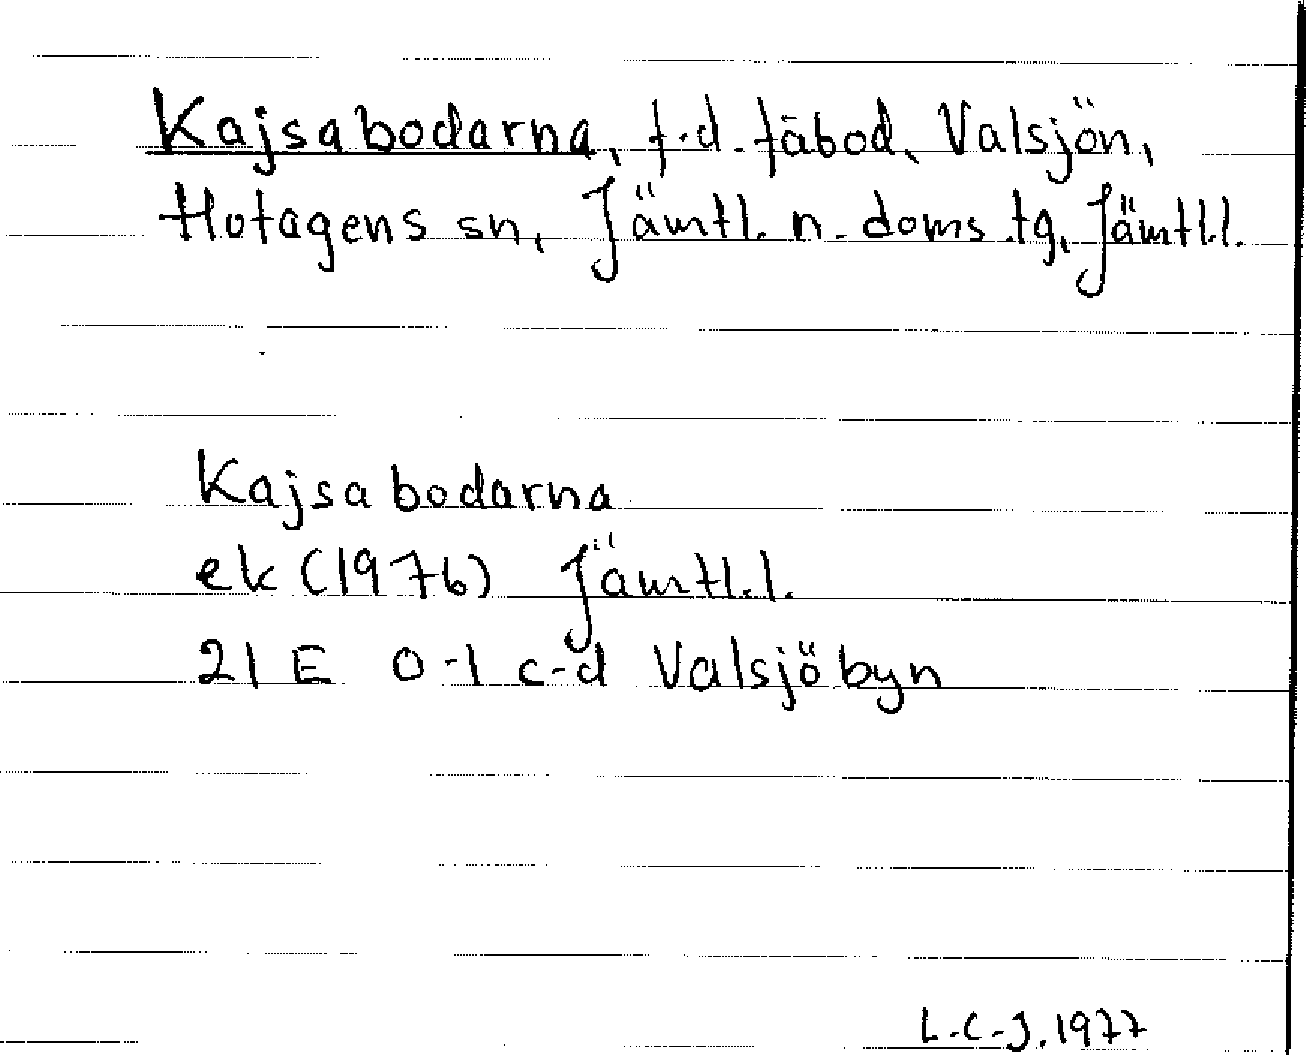 Kajsabodarna, f.d. fäbod, Valsjön,
Hotagens sn, Jämtl. n. doms.tg, Jämtl.l.
Kajsabodarna
ek (1976) Jämtl.l.
21 E 0-1 c-d Valsjöbyn
L.C-J. 1977